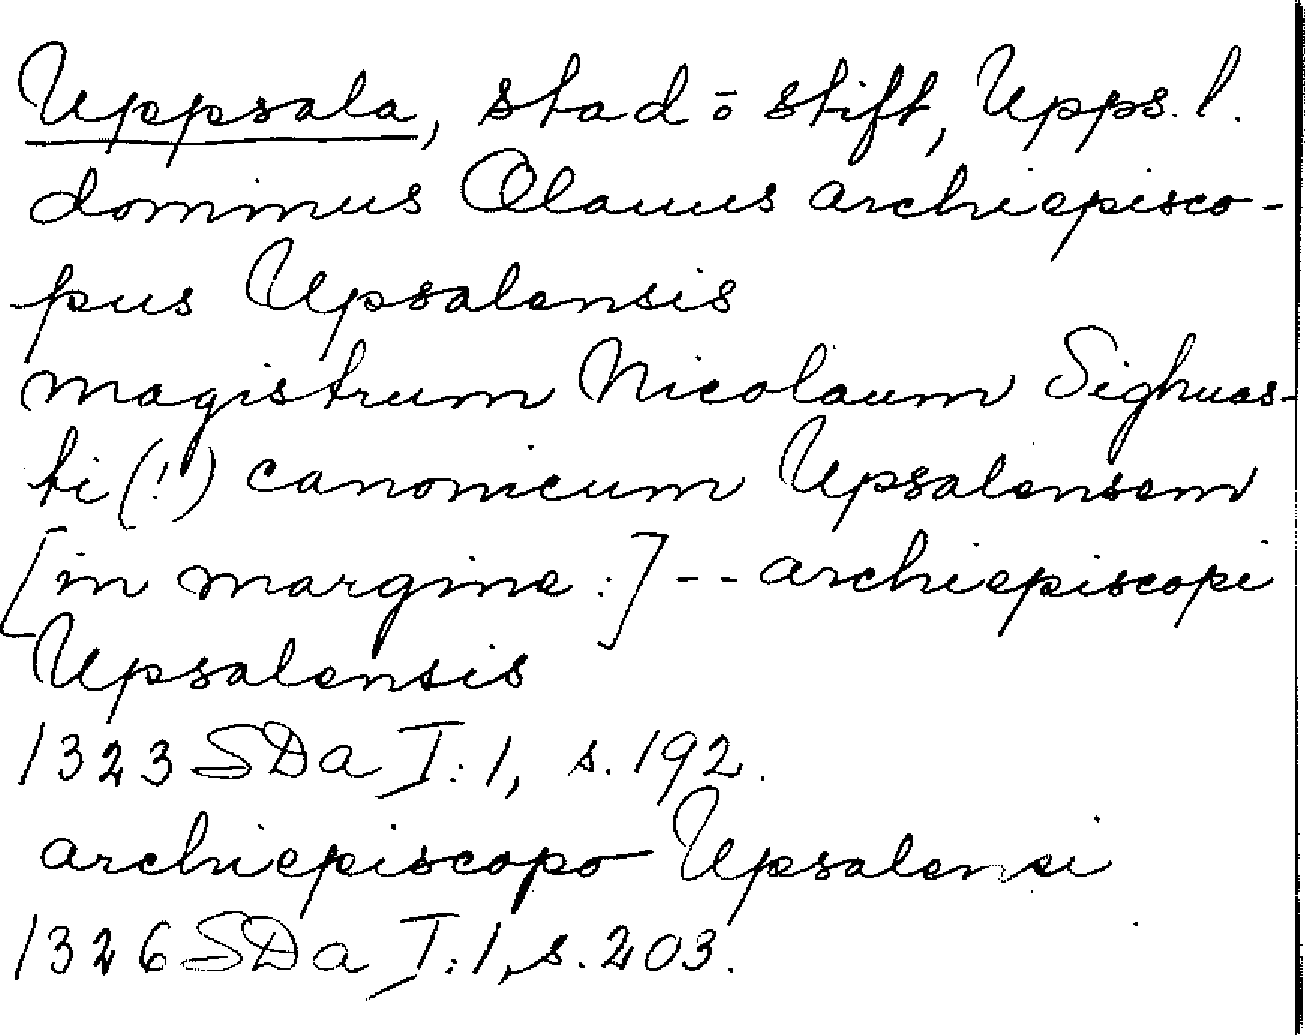 Uppsala, stad o stift, Upps. l.
dominus Olauus archiepisco-
pus Upsalensis
magistrum Nicolaum Sighuas-
ti (!) canonicum Upsalensem
[in margine:] -- archiepiscopi
Upsalensis
1323 SDa I:1, s. 192.
archiepiscopo Upsalensi
1326 SDa I:1, s. 203.